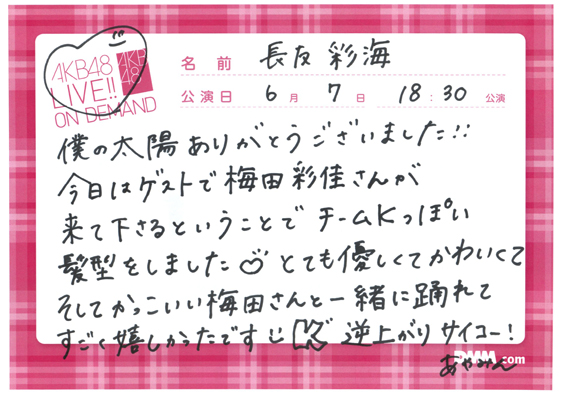 AKB48
LIVE!!
ON DEMAND
AKB
48
名前 長友 彩海
公演日 6月 7日 18:30 公演
僕の太陽ありがとうございました!!
今日はゲストで梅田彩佳さんが
来て下さるということで チームKっぽい
髪型をしました とても優しくてかわいくて
そしてかっこいい梅田さんと一緒に踊れて
すごく嬉しかったです 逆上がりサイコー!
あやみん
DMM.com